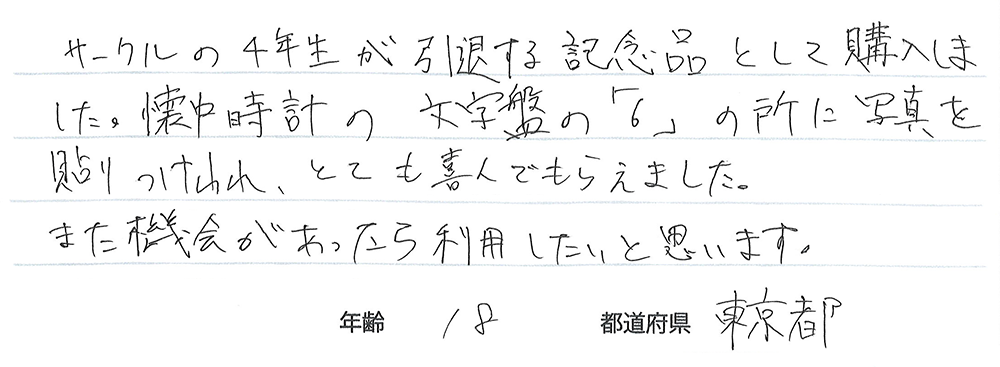 サークルの4年生が引退する記念品として購入しま
した。懐中時計の文字盤の「6」の所に写真を
貼りつけられ、とても喜んでもらえました。
また機会があったら利用したいと思います。
年齢 18 都道府県 東京都